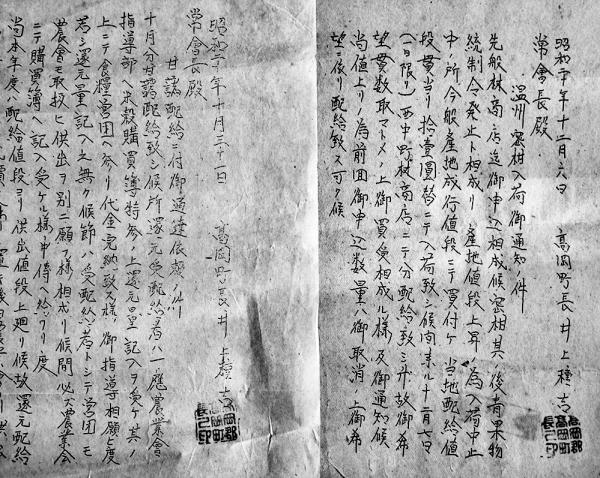 昭和二十年十二月六日　高岡町長井上穂吉
常會長殿
温州蜜柑入荷御通知ノ件
先般林商店迄御申込相成候蜜柑其ノ後青果物
統制令発止ト相成リ産地値段上昇ノ為入荷中止
中ノ所今般産地成行値段ニテ買付ケ当地配給値
段貫当リ拾壹圓替ニテ入荷致シ候間来ル十二月七日
(一日限リ)西中町林商店ニテ分配給致シ升故御希
望貫数取マトメノ上御買受相成ル様及御通知候
尚値上リノ為前回御申込数量ハ御取消ノ上御希
望ニ依リ配給致ス可ク候
高岡郡高岡町長之印
昭和二十年十月三十一日　高岡町長井上穂吉
常會長殿
甘藷配給ニ付御通達依頼ノ件
十月分甘藷配給致シ候所還元受配給者ハ一應農業會
指導部ヘ米穀購買簿持参ノ上還元量ノ記入ヲ受ケ其ノ
上ニテ食糧営団ヘ参リ代金完納致ス様御指導相願ヒ度
若シ還元量記入之無ク候節ハ受配給者トシテ営団モ
農會モ取扱ヒ供出ヲ別ニ願フ様相成リ候間必ズ農業会
ニテ購買簿ヘ記入受ケル様申傳ヘ給ワリ度
尚本年度ハ配給値段ヨリ供出値段上廻リ候故還元配給
高岡郡高岡町長之印